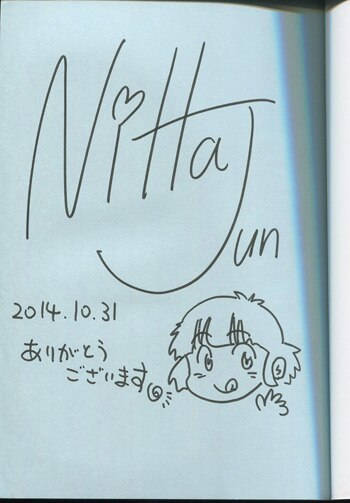 Nitta
Jun
2014.10.31
ありがとう
ございます